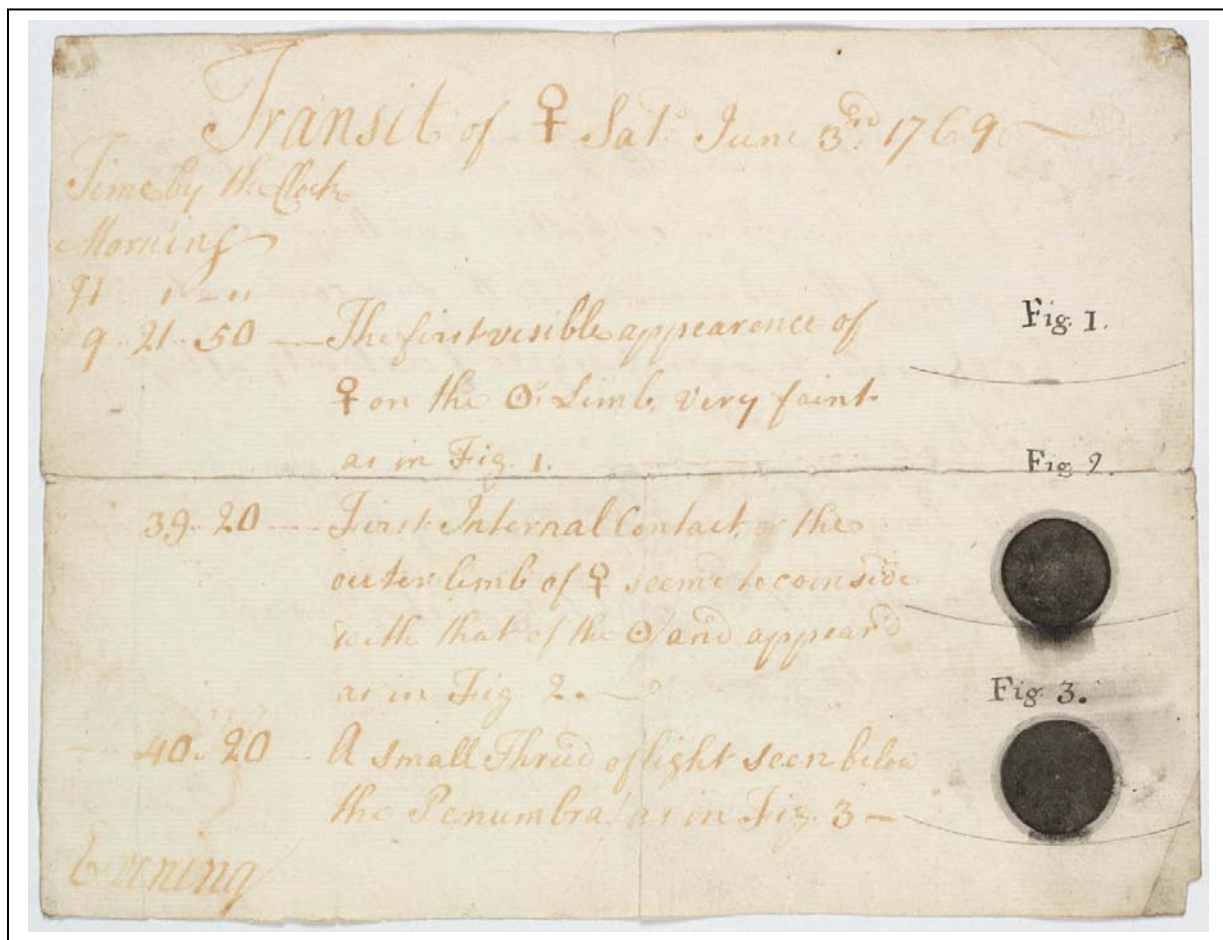 Transit of ♀ Satⁿ June 3ʳᵈ 1769
Time by the Clock
Morning
H ' — "
9 .. 21 .. 50 — The first visible appearence of
Fig. 1.
♀ on the ☉ˢ Limb, very faint
as in Fig. 1.
Fig 2.
39 .. 20 — First Internal Contact, the
outer limb of ♀ seem'd to coinside
with that of the ☉ and appear'd
as in Fig. 2.
Fig. 3.
— 40 .. 20 — A small Thrid of light seen below
the Penumbra as in Fig. 3 —
Evening